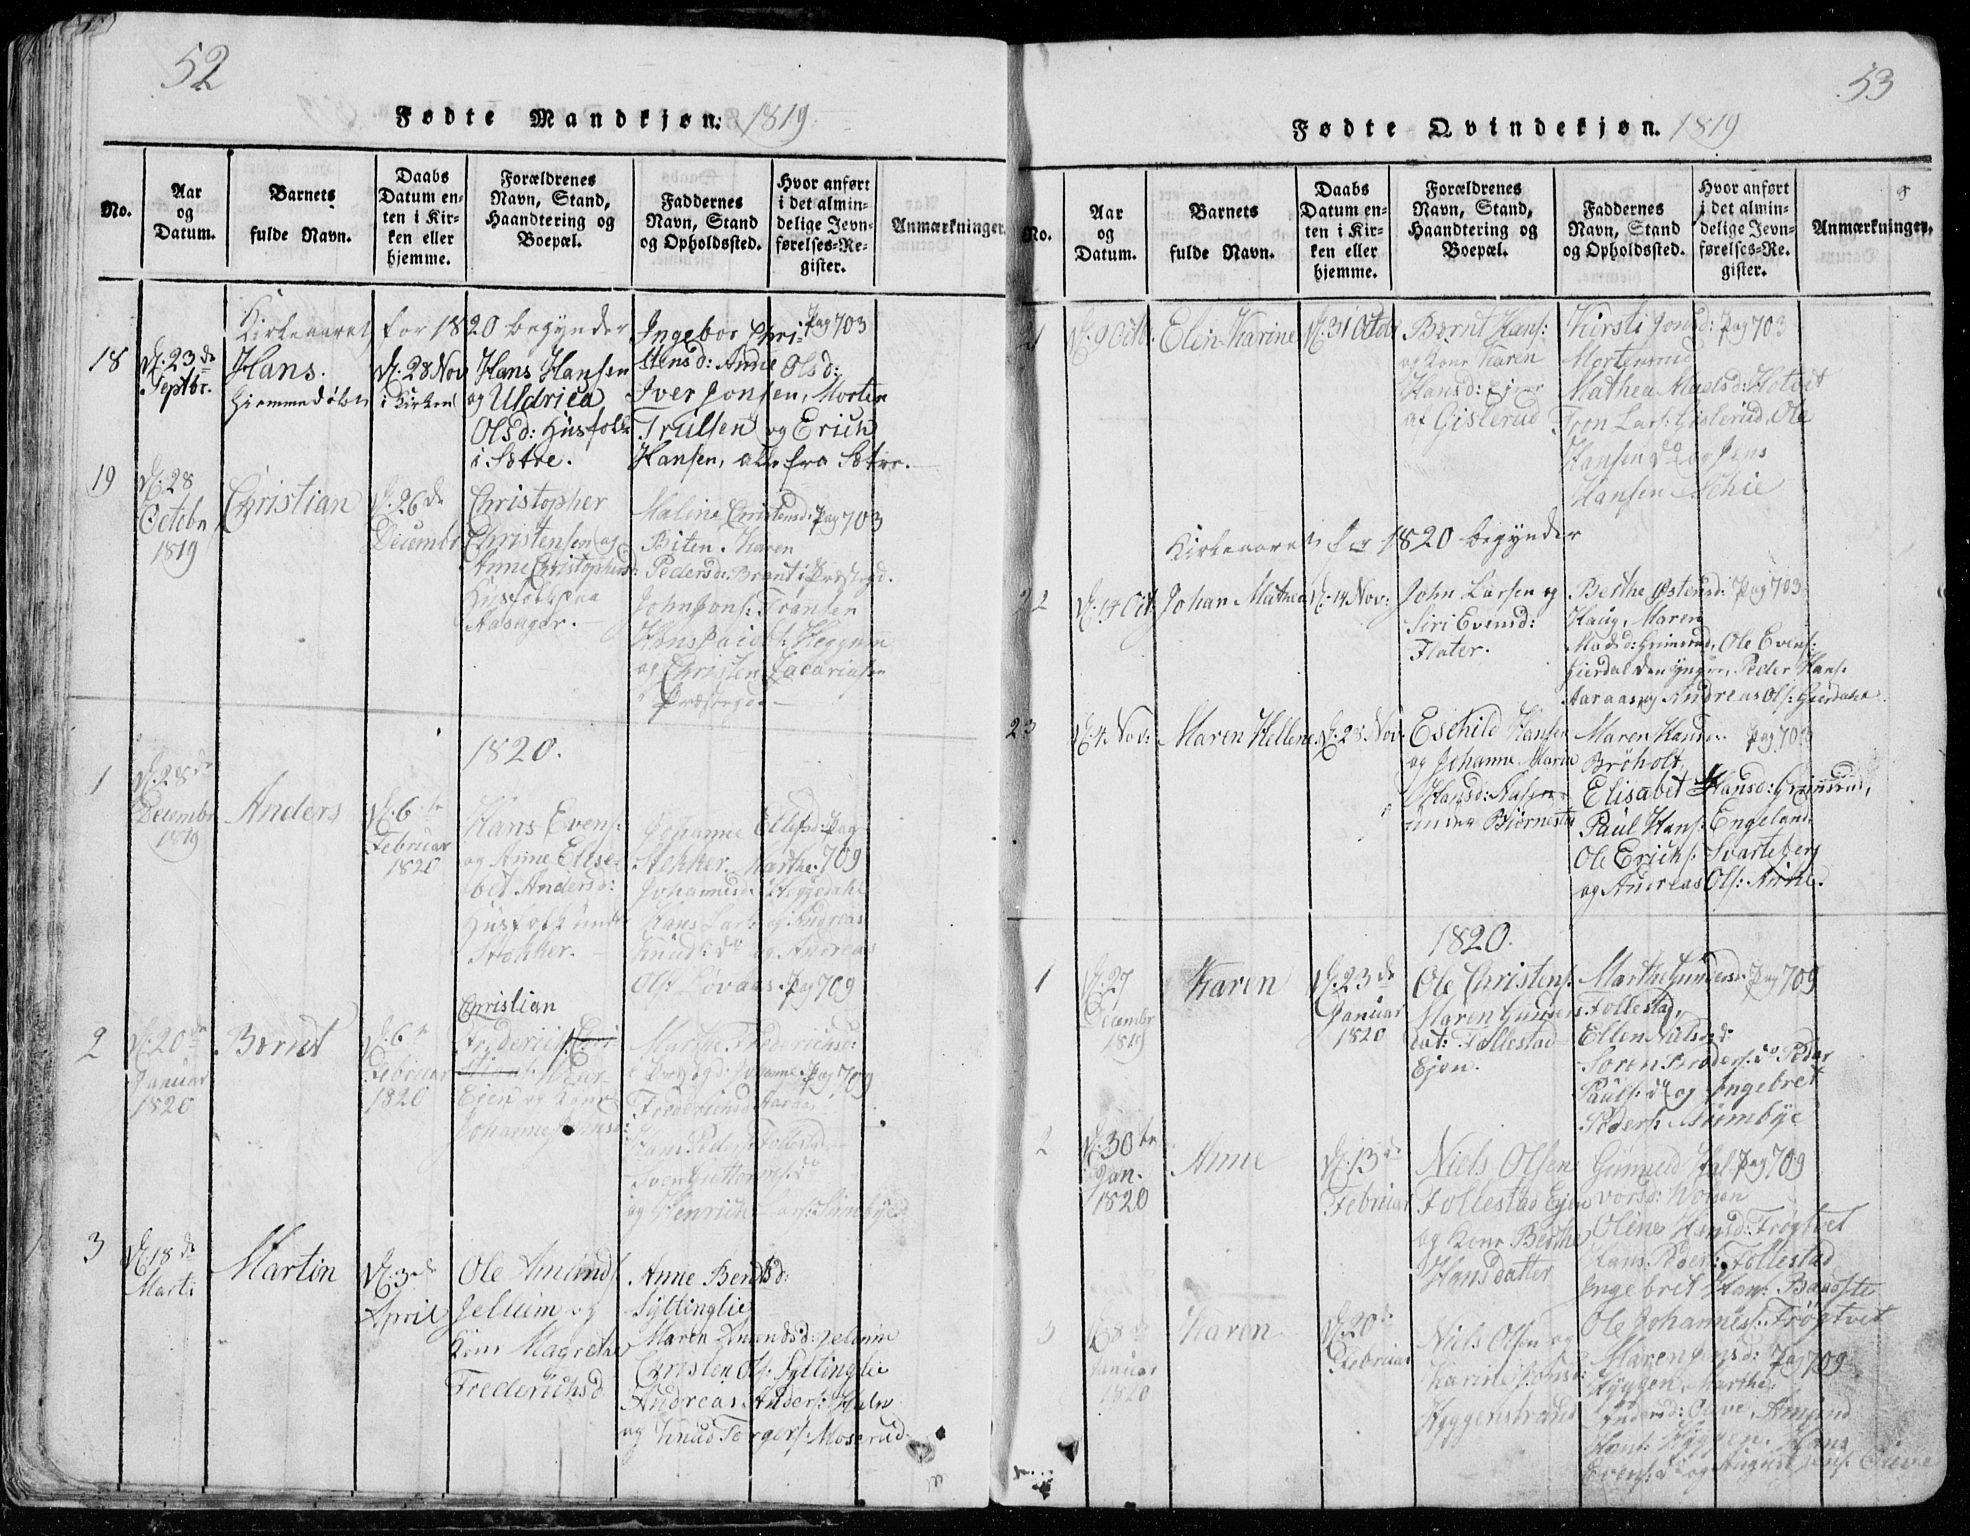 52
Fødte Mandkjøn. 1819.
No.
Aar
og
Datum.
Barnets
fulde Navn.
Daabs
Datum en-
ten i Kir-
ken eller
hjemme.
Forældrenes
Navn, Stand,
Haandtering og
Boepæl.
Faddernes
Navn, Stand
og Opholdssted.
Hvor anført
i det almin-
delige Jevn-
førelses-Re-
gister.
Anmærkninger.
Kirkeaaret for 1820 begynder
18
d. 23de
Septbr.
Hans.
Hiemmedøbt
d. 28 Nov
i Kirken
Hans Hansen
og Uldrica
Olsd: Husfolk
i Sætre.
Ingebor Chri-
stensd: Anne Olsd:
Iver Jonsen, Morten
Trulsen og Erich
Hansen, alle fra Sætre.
Pag 703
19
d. 28
Octobr
1819
Christian
d. 26de
Decembr
Christopher
Christensen og
Anne Christophersd:
Husfolk paa
Maline Christensd: Pag 703
Biten. Karen
Pedersd:
John Jons:
og Christen Zacariasen
1820.
1
d. 28de
Decembr
1819
Anders
d. 6te
Februar
1820
Hans Evens:
og Anne Elise-
bet Andersd:
Husfolk under
Stokker.
Johanne Ellefsd: Pag
Stokker. Marthe 709
Johannesd:
Hans Lars: og Andreas
Knuds: do og Andreas
Ols: Løvaas Pag 709
2
d. 20de
Januar
1820
Berndt
d. 6te
Februar
1820
Christian
Friderichs:
Eier og Kone
Johanne
Marthe Frederichsd:
Pag 709
Frederichsd: Aaraas
Hans Peders: Follestad
Sven Guttorms: do
og Henrich Lars:
3
d. 18de
Mart:
Martin
d. 3de
April
Ole Amunds:
Jellum og
Kone Magrethe
Frederichsd
Anne Berntsd:
Syltinglie
Maren Amundsd: Jellum
Christen Ols: Syltinglie
Andreas Anders:
og Knud Torgers: Moserud.
53
Fødte Qvindekjøn. 1819
No.
Aar
og
Datum.
Barnets
fulde Navn.
Daabs
Datum en-
ten i Kir-
ken eller
hjemme.
Forældrenes
Navn, Stand,
Haandtering og
Boepæl.
Faddernes
Navn, Stand
og Opholdssted.
Hvor anført
i det almin-
delige Jevn-
førelses-Re-
gister.
Anmærkninger.
21
d. 9 Octb.
Elin Karine
d. 31 Octobr
Bernt Hans:
og Kone Karen
Hansd: Ejere
af Gislerud
Kirsti Jonsd: Pag 703
Mortensrud
Mathea
Tron Lars: Gislerud, Ole
Hansen do og Jens
Hansen Schie
Kirkeaaret for 1820 begynder
22
d. 14 Oct.
Johan Mathea
d. 14 Nov:
John Larsen og
Siri Evensd:
Flater.
Berthe Østensd: Pag 703
Haug, Maren
Madsd: Grimsrud, Ole Evens:
Gierdal den yngre, Peder Hans:
Aaraas og Andreas Ols: Gierdahl.
23
d. 4 Nov:
Maren Hellene
d. 28 Nov.
Eschild Hansen
og Johanne Marie
Hansd: Aasen
under Biørnestad
Maren Hansd: Pag 703
Brøholt,
Elisabet Hansd: Grimsrud,
Paul Hans: Engeland,
Ole Erichs: Svarteberg
og Andreas Ols: Anne.
1820.
1
d. 27
Decembr
1819
Karen
d. 23de
Januar
1820
Ole Christens:
Maren Gunders
dat: Follestad
Ejere.
Marthe Gundersd: Pag 709
Follestad,
Ellen Nielsd: do
Søren Peders: do Peder
Pauls: do og Ingebret
Peders:
2
d. 30te
Jan.
1820
Anne
d. 13de
Februar
Niels Olsen
Follestad Ejer
og Kone Berthe
Hansdatter
Gunild Hal- Pag 709
vorsd:
Oline Hansd: Frøgtvet
Hans Peders: Follestad
Ingebret Hans:
Ole Johannes: Frøgtvet
3
d. 8de
Januar
1820
Karen
d. 20de
Februar
Niels Olsen og
Karine
Hyggenstrand
Maren Jensd: Pag 709
Hyggen, Marthe
Andersd: Amund
Hans: Hyggen. Hans
Evens: do og August Jens: